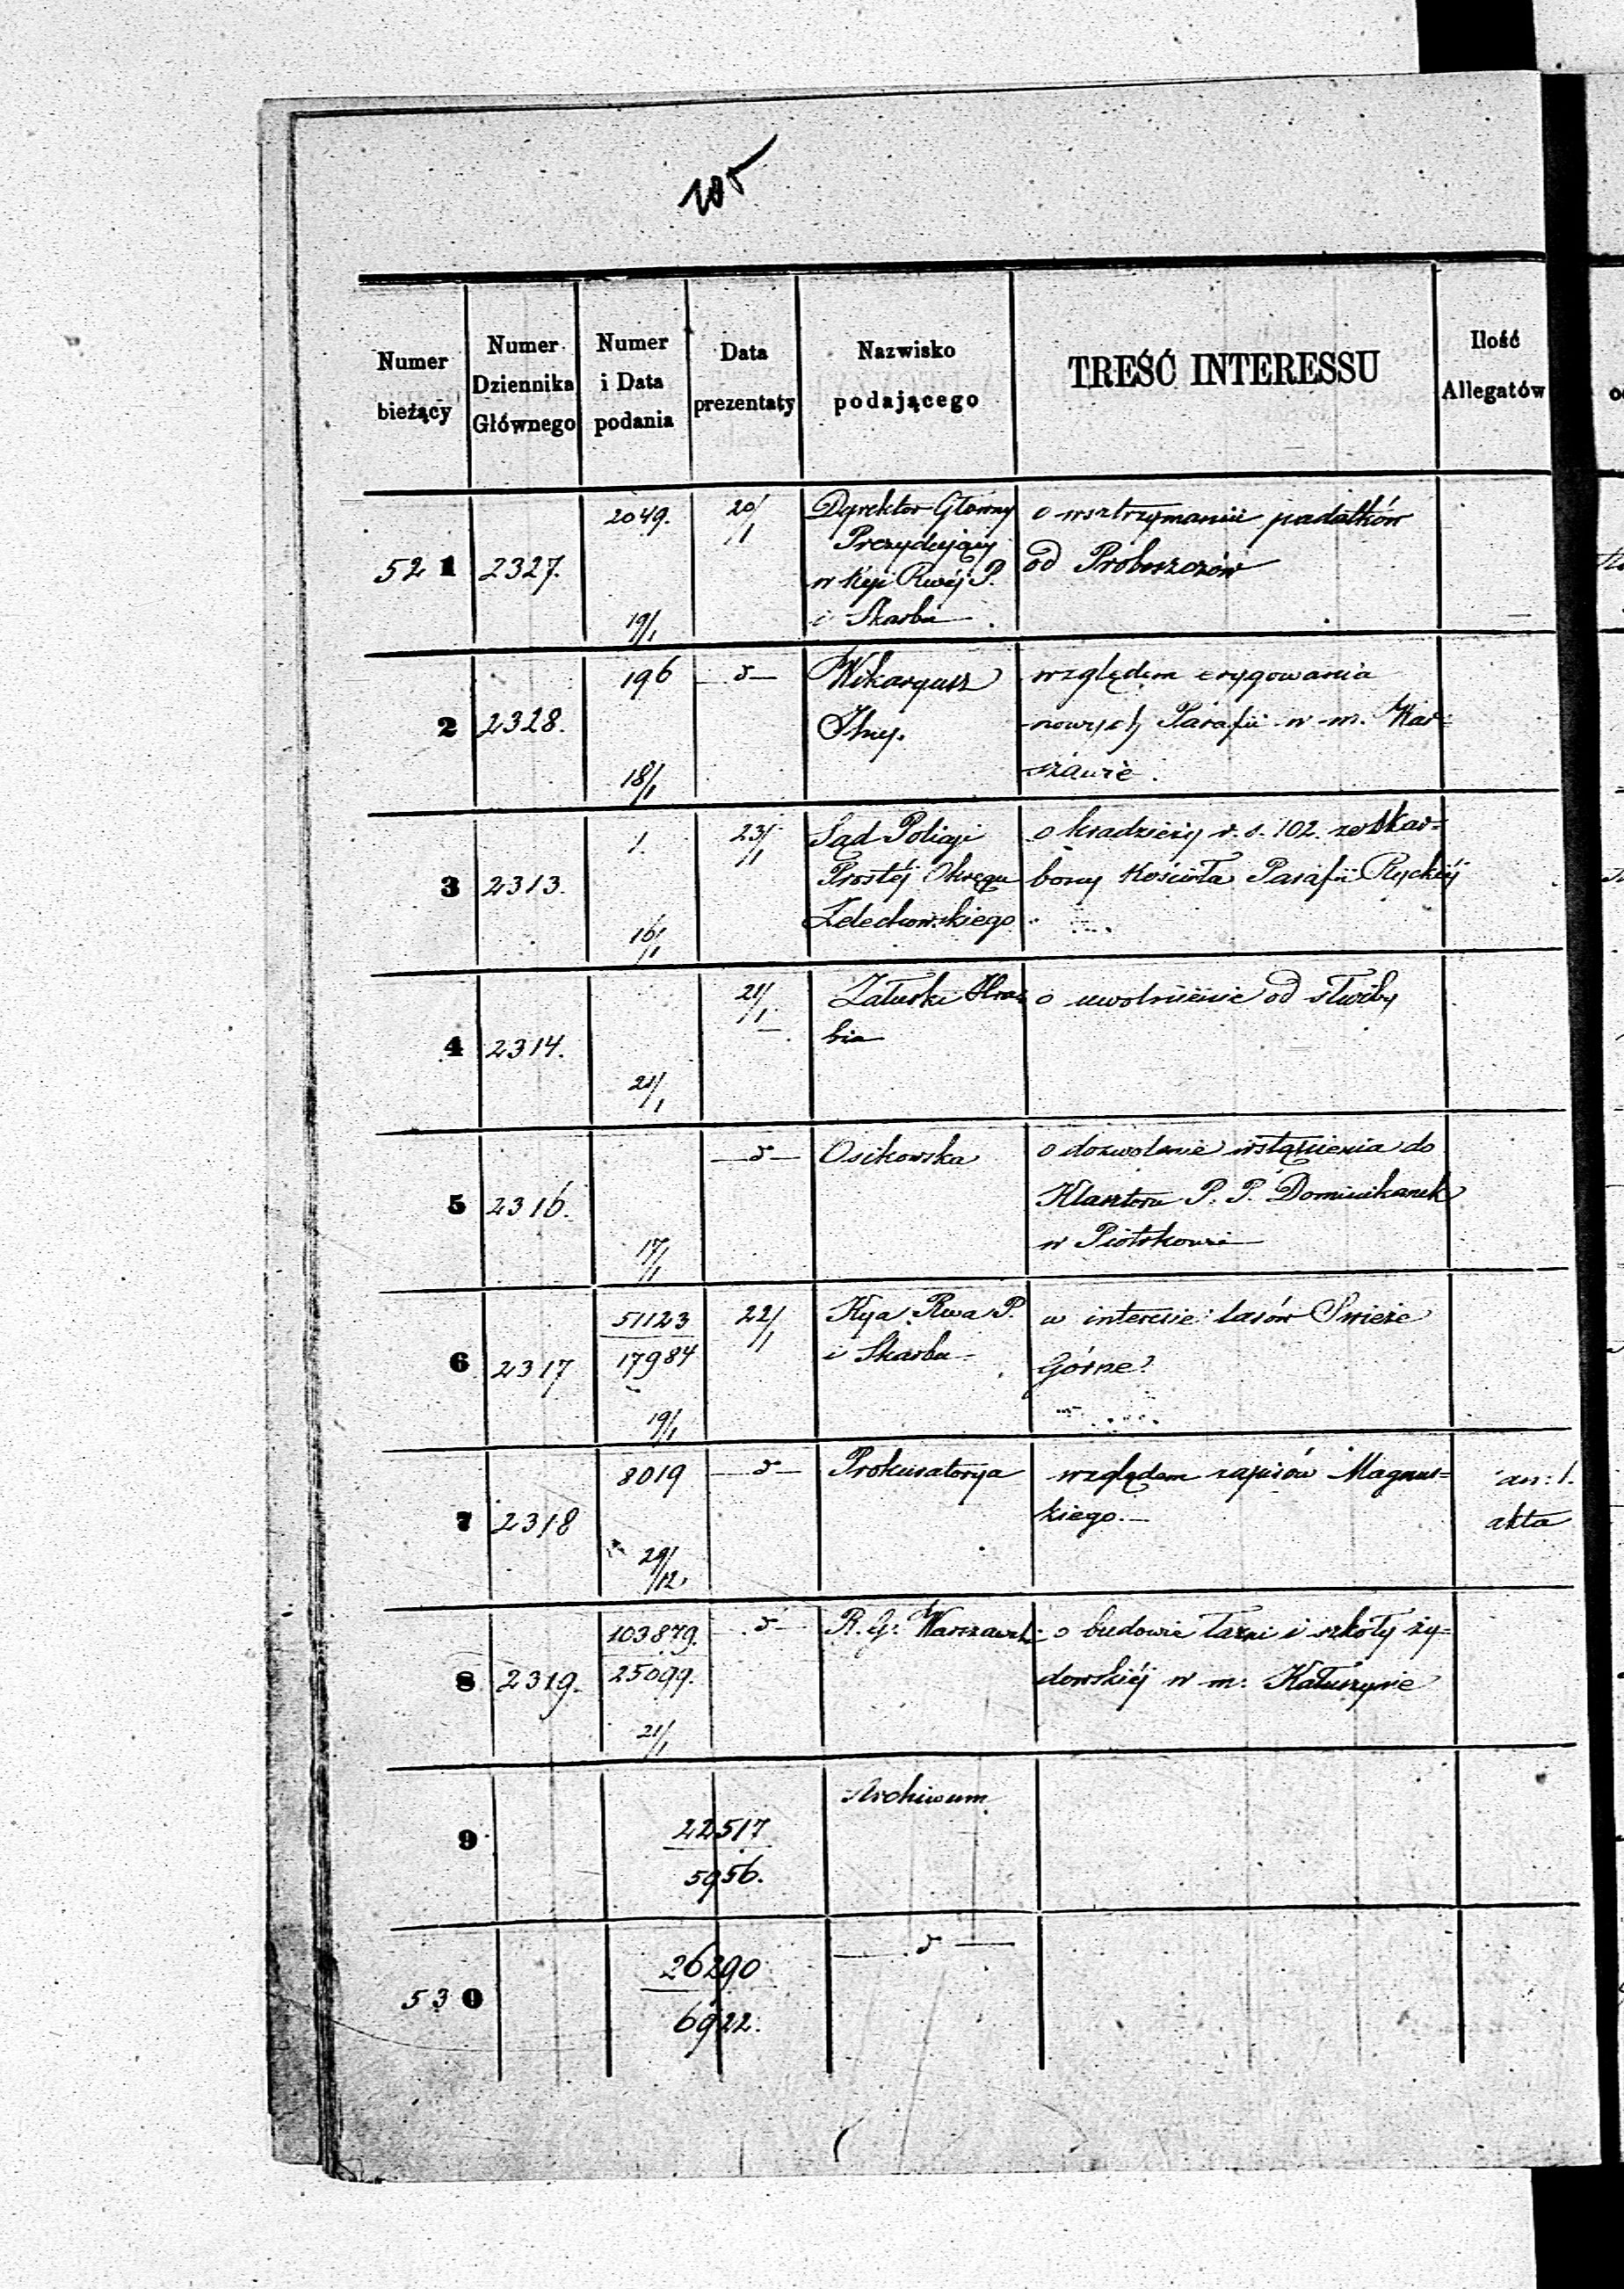 105
Numer bieżący
Numer Dziennika Głównego
Numer i Data podania
Data prezentaty
Nazwisko podającego
TREŚĆ INTERESSU
Ilość Allegatów
521 2327. 2049. 19/1 20/1
Dyrektor Główny
Prezydujący
w Kyi Rwéj P.
i Skarbu
o wstrzymaniu podatków
od Proboszczów
2 2328. 196 18/1 —d—
Wikaryusz
względem erygowania
nowych Parafii w m. War=
szawie.
3 2313. 1. 16/1 23/1
Sąd Policyi
Prostéj Okręgu
Żelechowskiego
o kradzieży r. s. 102. ze Skar=
bony Kościoła Parafii Ryckiéj
4 2314. 21/1 21/1
Załuski Hra=
bia
o uwolnienie od służby
5 2316. 17/1 —d—
Osikowska
o dozwolenie wstąpienia do
Klasztoru P. P. Dominikanek
w Piotrkowie
6 2317 51123
17984 19/1 22/1
Kya Rwa P.
i Skarbu
w interesie lasów Swieże
Górne
7 2318 8019 29/12 —d—
Prokuratorya
względem zapisów Magnus=
kiego.—
an: 1.
akta
8 2319. 103879.
25099. 21/1 —d—
R. G. Warszawsk:
o budowie łazni i szkoły ży=
dowskiéj w m: Kałuszynie
9 22517
5956.
Archiwum
530 26290
6922.
—d—